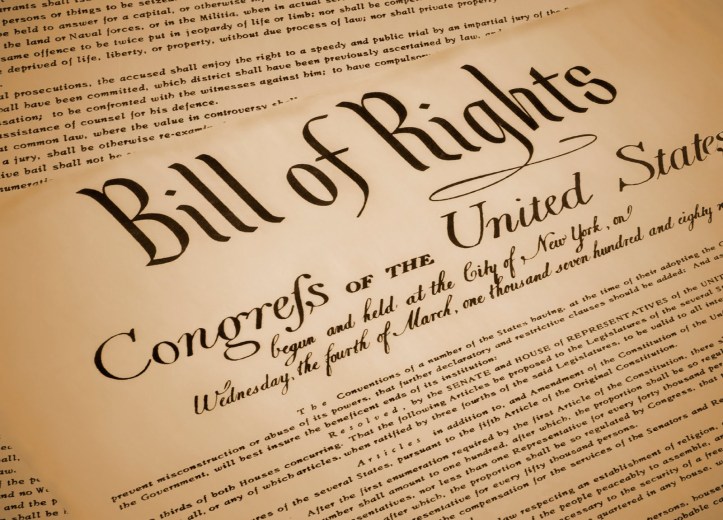 rrants shall issue, but upon probable cause,
persons or things to be seized.
be held to answer for a capital, or otherwise
the land or Naval forces, or in the Militia, when in actual
same offence to be twice put in jeopardy of life or limb; nor shall be compel
deprived of life, liberty, or property, without due process of law; nor shall private property
al prosecutions, the accused shall enjoy the right to a speedy and public trial by an impartial jury of the
hall have been committed, which district shall have been previously ascertained by law, and
sation; to be confronted with the witnesses against him; to have compulsory
assistance of counsel for his defence.
at common law, where the value in controversy shall
a jury, shall be otherwise re-exam
ive bail shall not be
numerati
Bill of Rights
Congreſs OF THE United States
begun and held at the City of New York, on
Wednesday, the fourth of March, one thousand seven hundred and eighty n
The Conventions of a number of the States having, at the time of their adopting the C
prevent misconstruction or abuse of its powers, that further declaratory and restrictive clauses should be added: And as
the Government, will best insure the beneficent ends of its institution:
Resolved, by the SENATE and HOUSE of REPRESENTATIVES of the UNIT
thirds of both Houses concurring. That the following Articles be proposed to the Legislatures of the several
all, or any of which articles, when ratified by three fourths of the said Legislatures, to be valid to all inte
Articles in addition to, and Amendment of the Constitution of the Un
res of the several States, pursuant to the fifth Article of the Original Constitution.
After the first enumeration required by the first Article of the Constitution, there s
number shall amount to one hundred, after which, the proportion shall be so reg
entatives, nor less than one Representative for every forty thousand pers
after which, the proportion shall be so regulated by Congress, that t
entative for every fifty thousand persons.
the compensation for the services of the Senators and Re
law respecting an establishment of religion,
the people peaceably to assemble, a
to the security of a free
quartered in any house,
persons, hous